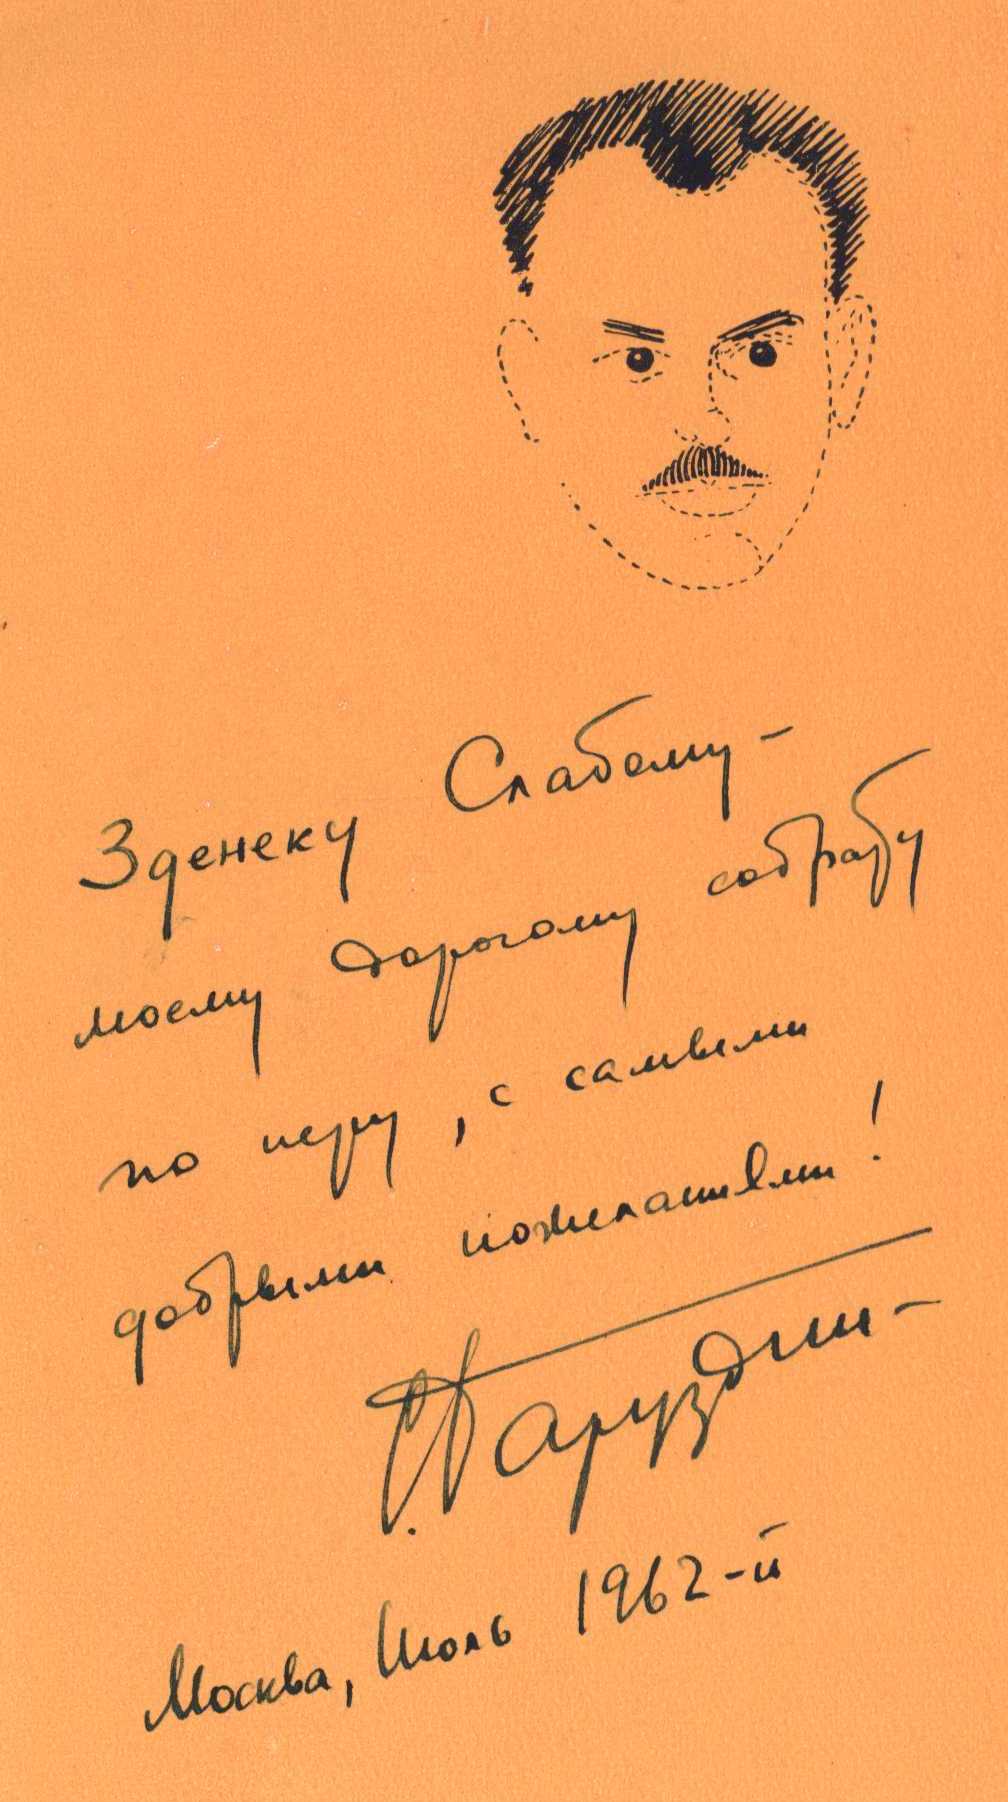 Зденеку Слабому –
моему дорогому собрату
по перу, с самыми
добрыми пожеланиями!
С. Баруздин –
Москва, Июль 1962-й